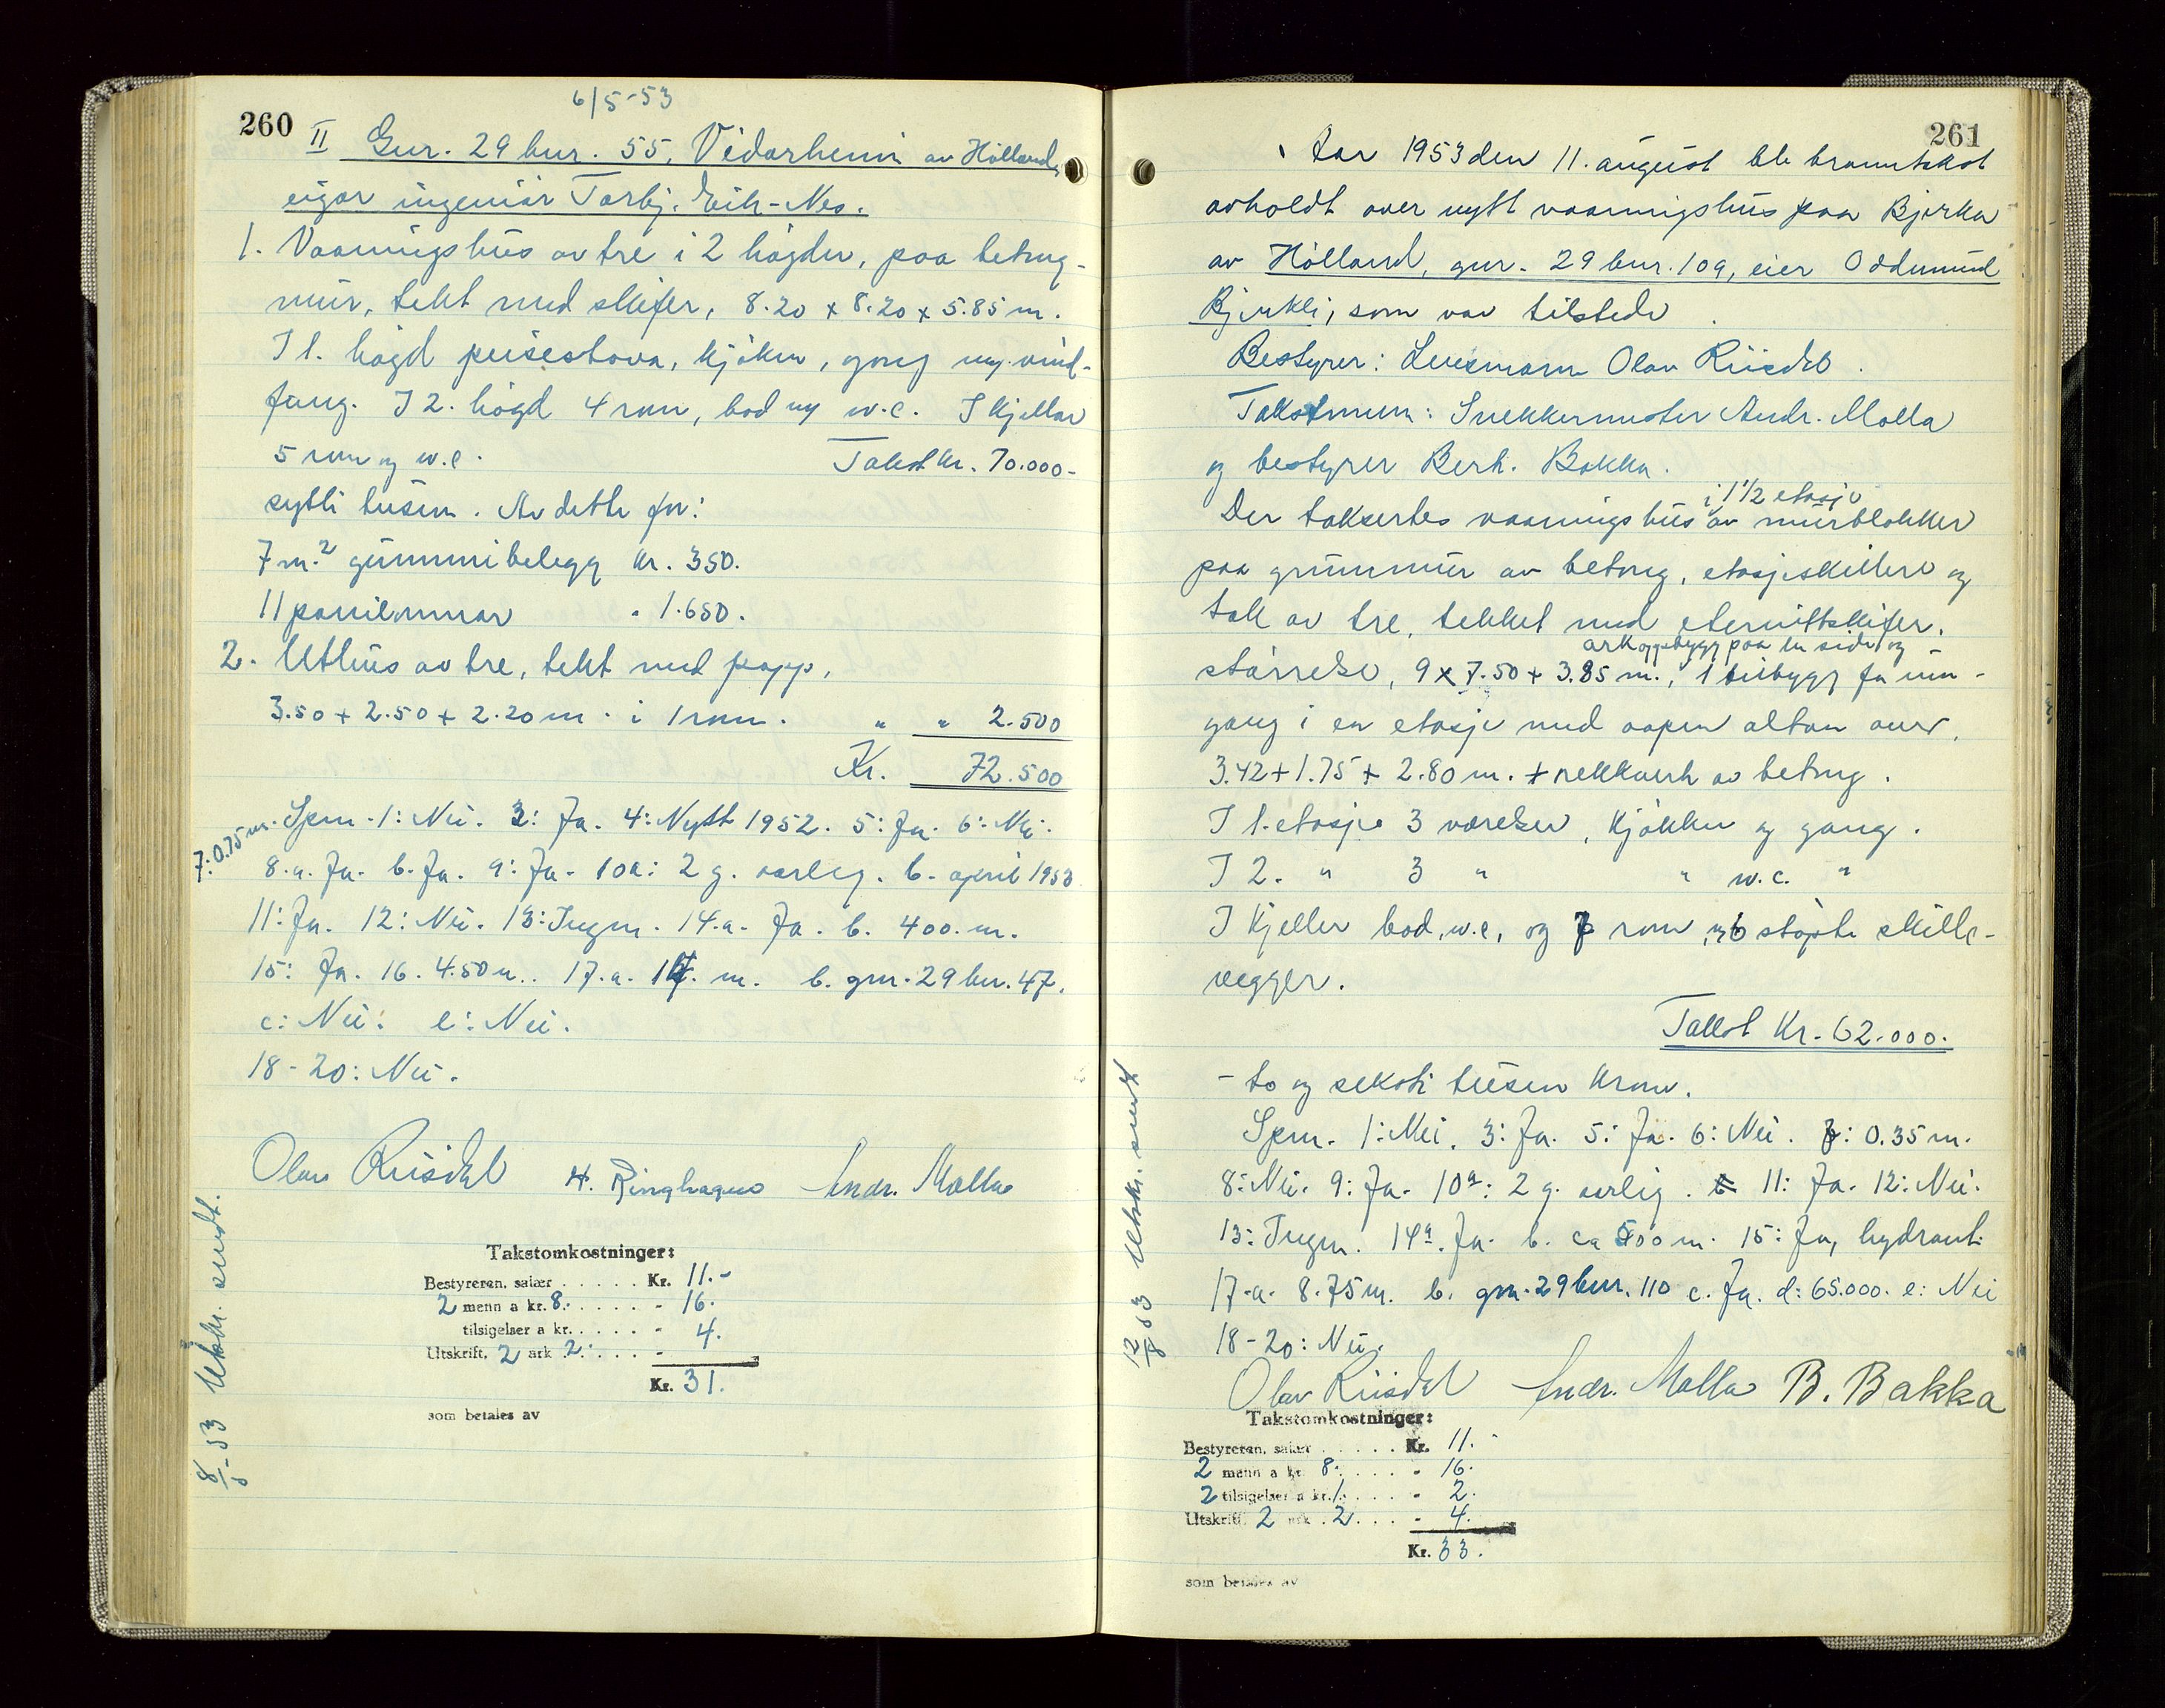 260
6/5-53
II Gnr. 29 bnr. 55, Vidarheim av Hølland,
eigar ingeniør Torbj. Eik-Nes.
1. Vaaningshus av tre i 2 høgder, paa betong-
mur, tekt med skifer, 8.20 x 8.20 x 5.85 m.
I 1. høgd peisestova, kjøken, gong og vind-
fang. I 2. høgd 4 rom, bod og w.c. I kjellar
5 rom og w.c. Takst kr. 70.000-
sytti tusen. Av dette for:
7 m.² gummibelegg kr. 350.
11 panelomnar " 1.650.
2. Uthus av tre, tekt med papp,
3.50 + 2.50 + 2.20 m. i 1 rom. " " 2.500
Kr. 72.500
Spm. 1: Nei. 3: Ja. 4: Nytt 1952. 5: Ja. 6: Nei.
7: 0.75 m.
8.a. Ja. b. Ja. 9: Ja. 10a: 2 g. aarleg. b. april 1953
11: Ja. 12: Nei. 13: Ingen. 14.a. Ja. b. 400 m.
15: Ja. 16. 4.50 m. 17.a. 17. m. b. gnr. 29 bnr. 47.
c: Nei. e: Nei.
18-20: Nei.
Olav Riisdal H. Ringhagen Andr. Malla
8/5-53 Utskr. sendt.
Takstomkostninger:
Bestyreren, salær . . . . . Kr. 11.-
2 menn a kr. 8.- . . . . . - 16.
tilsigelser a kr. . . . . . - 4.
Utskrift, 2 ark 2.- . . . . -
Kr. 31.
som betales av
261
Aar 1953 den 11. august ble branntakst
avholdt over nytt vaaningshus paa Bjerka
av Hølland, gnr. 29 bnr. 109, eier Oddmund
Bjerkli, som var tilstede.
Bestyrer: Lensmann Olav Riisdal.
Takstmenn: Snekkermester Andr. Malla
og bestyrer Berh. Bakka.
i 1 1/2 etasje
Der taksertes vaaningshus av murblokker
paa grunnmur av betong, etasjeskillere og
tak av tre, tekket med eternittskifer.
ark oppbygg paa en side og
størrelse, 9 x 7.50 + 3.85 m., 1 tilbygg for inn-
gang i en etasje med aapen altan over,
3.42 + 1.75 + 2.80 m. + rekkverk av betong.
I 1. etasje 3 værelser, kjøkken og gang.
I 2. " 3 " " w.c. "
I kjeller bod, w.c, og 7 rom, og 6 støpte skille-
vegger.
Takst kr. 62.000.
- to og seksti tusen kroner.
Spm. 1: Nei. 3: Ja. 5: Ja. 6: Nei. 7: 0.35 m.
8: Nei. 9: Ja. 10a: 2 g. aarlig. 11: Ja. 12: Nei.
13: Ingen. 14a. Ja. b. ca 500 m. 15: Ja, hydrant.
17.a. 8.75 m. b. gnr. 29 bnr. 110 c. Ja. d: 65.000. e: Nei
18-20: Nei.
Olav Riisdal Andr. Malla B. Bakka
12/8 53 Utskr. sendt
Takstomkostninger:
Bestyreren, salær . . . . . Kr. 11.-
2 menn a kr. 8.- . . . . - 16.
2 tilsigelser a kr. 1. . . . . - 2.
Utskrift 2 ark . 2 . . . . - 4.
Kr. 33.
som betales av